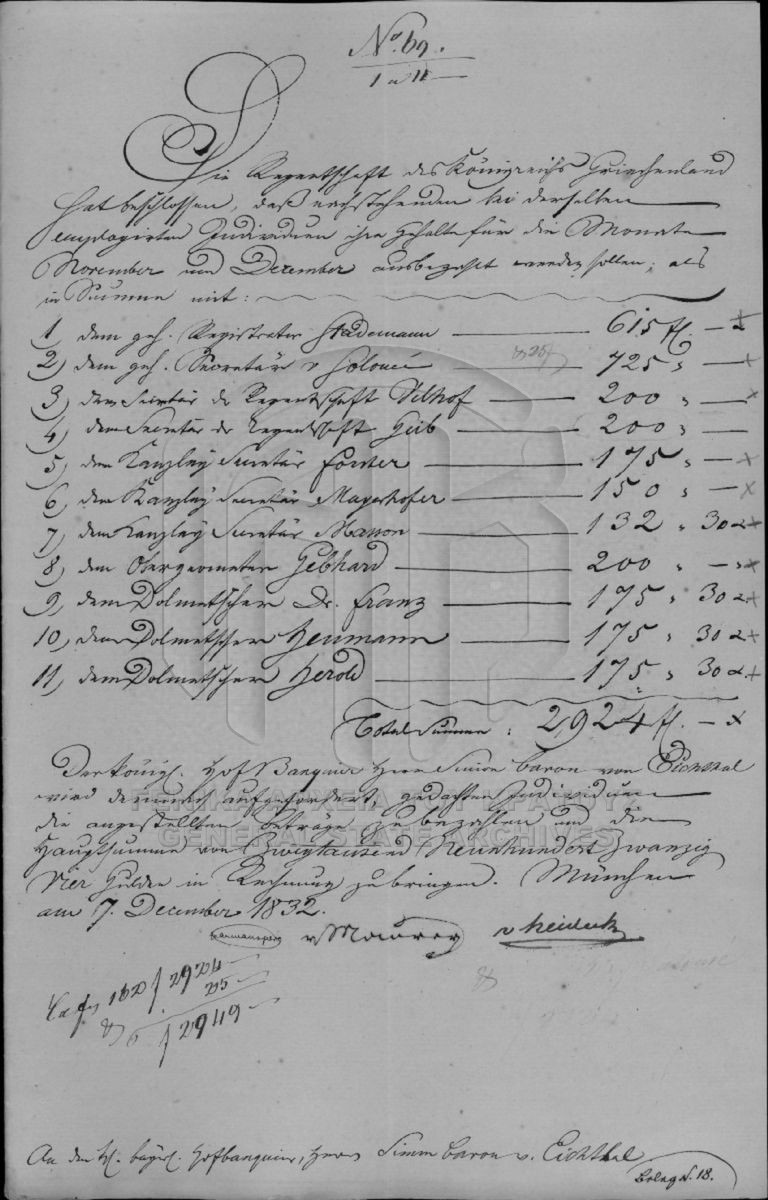 No. 69.
1 a 11
Die Regentschaft des Königreichs Griechenland
hat beschlossen, daß nachstehenden bei derselben
employirten Individuen ihre Gehalte für die Monate
November und Dezember ausbezahlt werden sollen; als
in Summe mit:
1, dem geh. Registrator Stademann 615 fl. –
2, dem geh. Secretär v 725 „ –
3, dem Secretär der Regentschaft Vilhof 200 „ –
4, dem Secretär der Regentschaft Geib 200 „ –
5, dem Kanzley Secretär Forster 175 „ –
6, dem Kanzley Secretär Mayerhofer 150 „ –
7, dem Kanzley Secretär Masson 132 „ 30
8, dem Obergeometer Gebhard 200 „ –
9, dem Dolmetscher Dr. Franz 175 „ 30
10, dem Dolmetscher Heumann 175 „ 30
11, dem Dolmetscher Herold 175 „ 30
Total Summe: 2,924 fl. –
Der königl. Hof Banquier Herr Simon Baron von Eichthal
wird demnach aufgefordert, gedachten Individuen
die angestellten Beträge zu bezahlen und die
Hauptsumme von Zweytausend Neunhundert Zwanzig
Vier Gulden in Rechnung zu bringen. München
am 7. December 1832.
v Maurer v Heideck
2924
25
2949
An den kl. bayer. Hofbanquier, Herrn Simon Baron v. Eichthal
Beleg N. 18.
ΓΕΝΙΚΑ ΑΡΧΕΙΑ ΤΟΥ ΚΡΑΤΟΥΣ
GENERAL STATE ARCHIVES